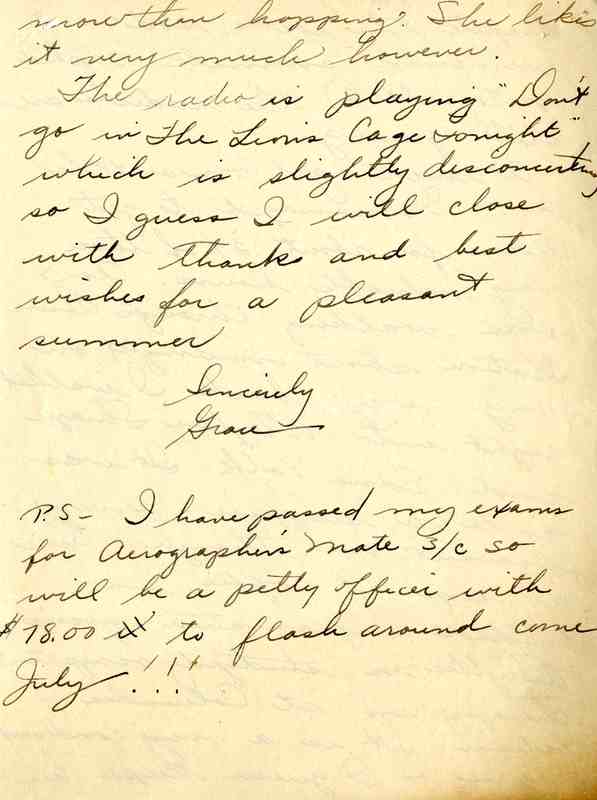 more than hopping. She likes
it very much however.
The radio is playing "Don't
go in The Lion's Cage tonight"
which is slightly desconcerting
so I guess I will close
with thanks and best
wishes for a pleasant
summer
Sincerely
Grace
P.S- I have passed my exams
for Aerographer's Mate 3/c so
will be a petty officer with
$78.00 to flash around come
July !!!